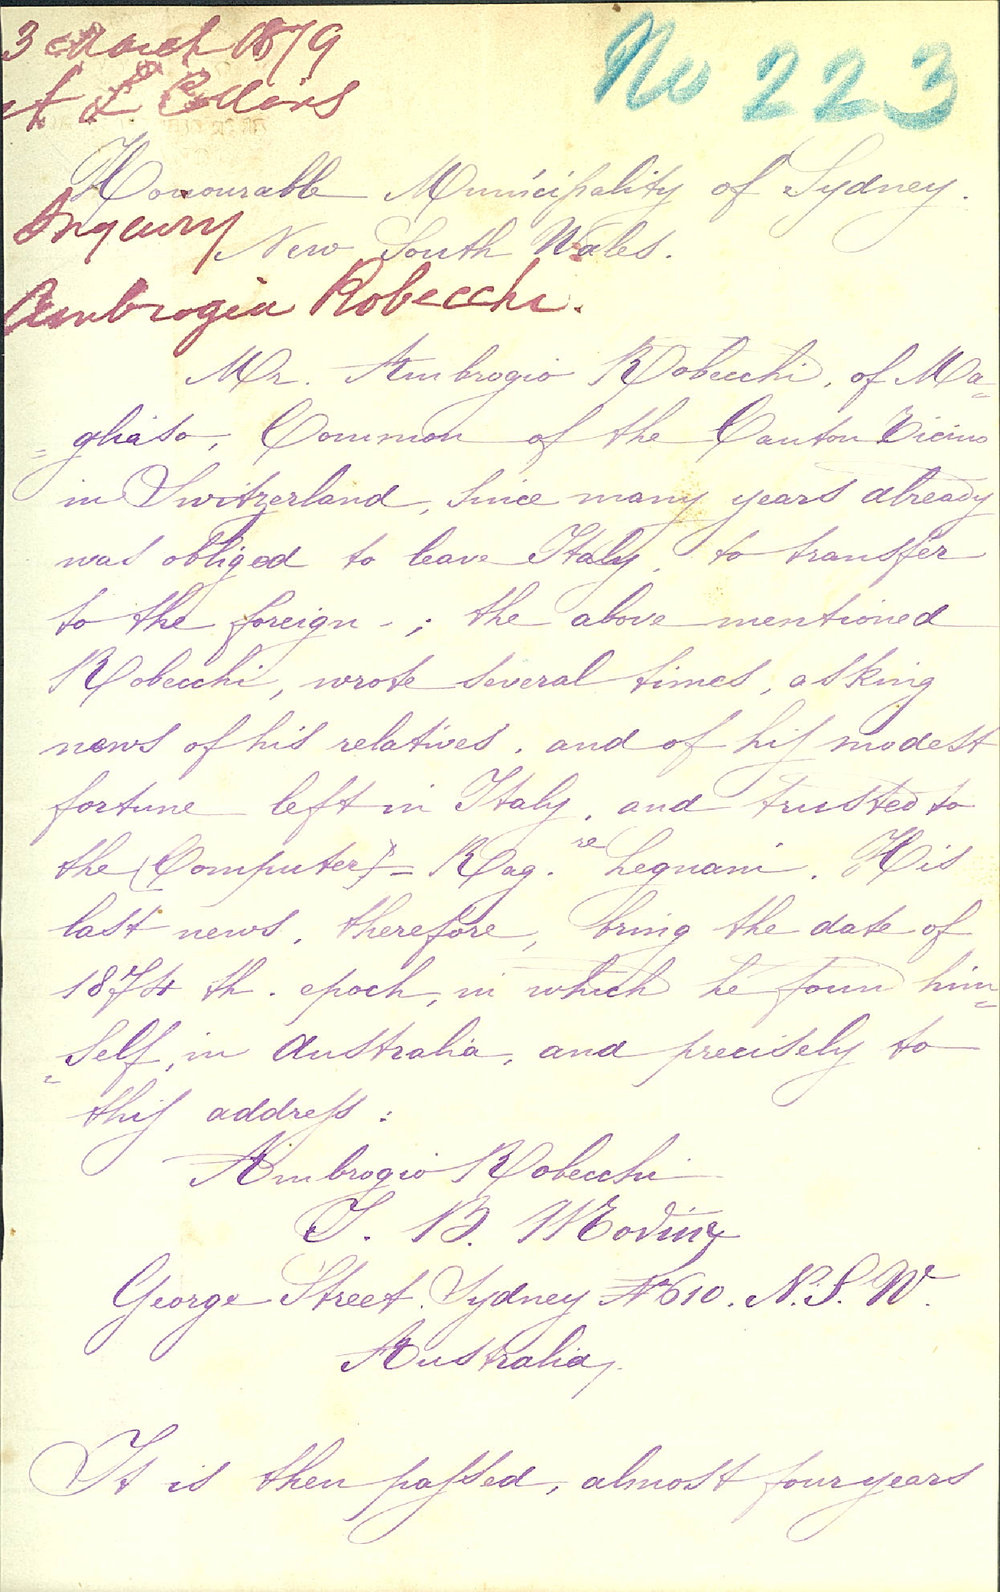 3 March 1879
No 223
A L Collins
Honourable Municipality of Sydney.
Inqeury
New South Wales.
Ambrogia Robecchi.
Mr. Ambrogio Robecchi, of Ma=
=gliaso, Common of the Canton Ticino
in Switzerland, since many years already
was obliged to leave Italy, to transfer
to the foreign -; the above mentioned
Robecchi, wrote several times, asking
news of his relatives, and of his modest
fortune left in Italy, and trusted to
the (Computer)= Rag.re Legnani. His
last news, therefore, bring the date of
1874 th. epoch, in which he foun him=
=self, in Australia, and precisely to
this address:
Ambrogio Robecchi
B.
George Street. Sydney No 610. N.S.W.
Australia,
It is then passed, almost four years